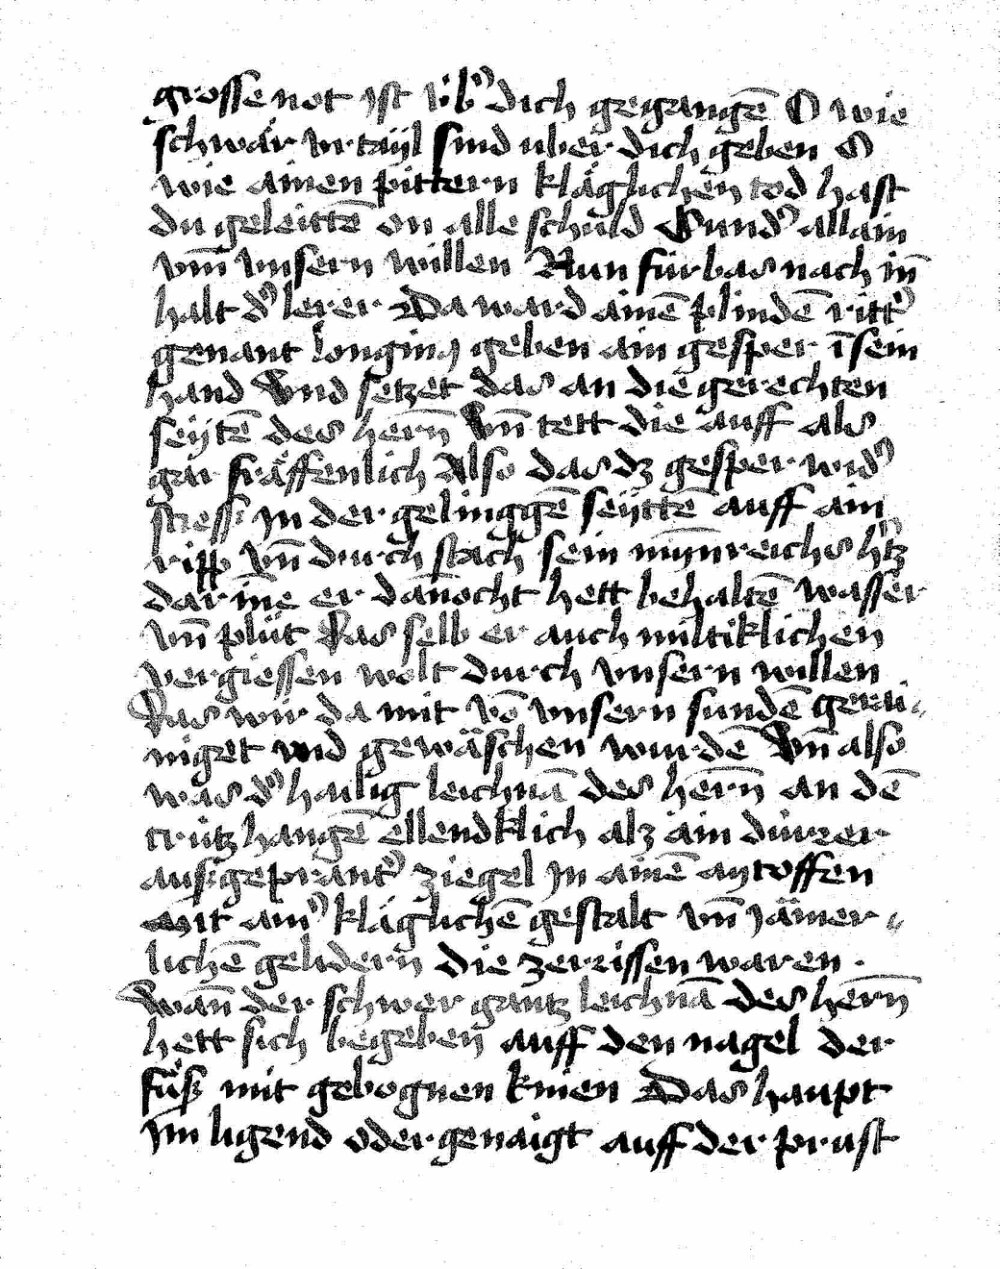 grosse not jst v̈b᾽ dich gegangē O wie
schwär vrtaÿl sind uber dich geben O
wie ainen pittern kläglichen tod hast
du geleittē on alle schuld Sund᾽ allain
vm̄ vnsern willen Nun fürbas nach in̄
halt d᾽ lerer Da ward ainē plindē ritt᾽
genant longinꝰ geben ain gesper ī sein
hand Vnd setzet das an die gerechten
seÿtē des hern̄ Vn̄ tett die auff als
gar fräffenlich Also das dz gesper wid᾽
stiess jn der gelinggē seÿttē auff ain
ripp vn̄ durch stach sein mÿnreichs h᾽tz
dar in̄e er dan̄ocht hett behaltē wasser
vn̄ plüt Das selb er auch miltiklichen
vergiessen wolt durch vnsern willen
Das wir da mit vō vnsern sundē gerai-
niget vnd gewäschen wurdē Vn̄ also
was d᾽ hailig leichnā des hern̄ an dē
crütz hangē ellendklich alz ain dürrer
ausgeprant᾽ ziegel jn ainē aÿtoffen
Mit ain᾽ kläglichē gestalt vn̄ jämer-
lichē gelidern die zerrissen waren .
Wan̄ der schwer gantz leichnā des hern̄
hett sich begeben auff den nagel der
füß mit gebognen knien Das haupt
jm ligend oder genaigt auff der prust